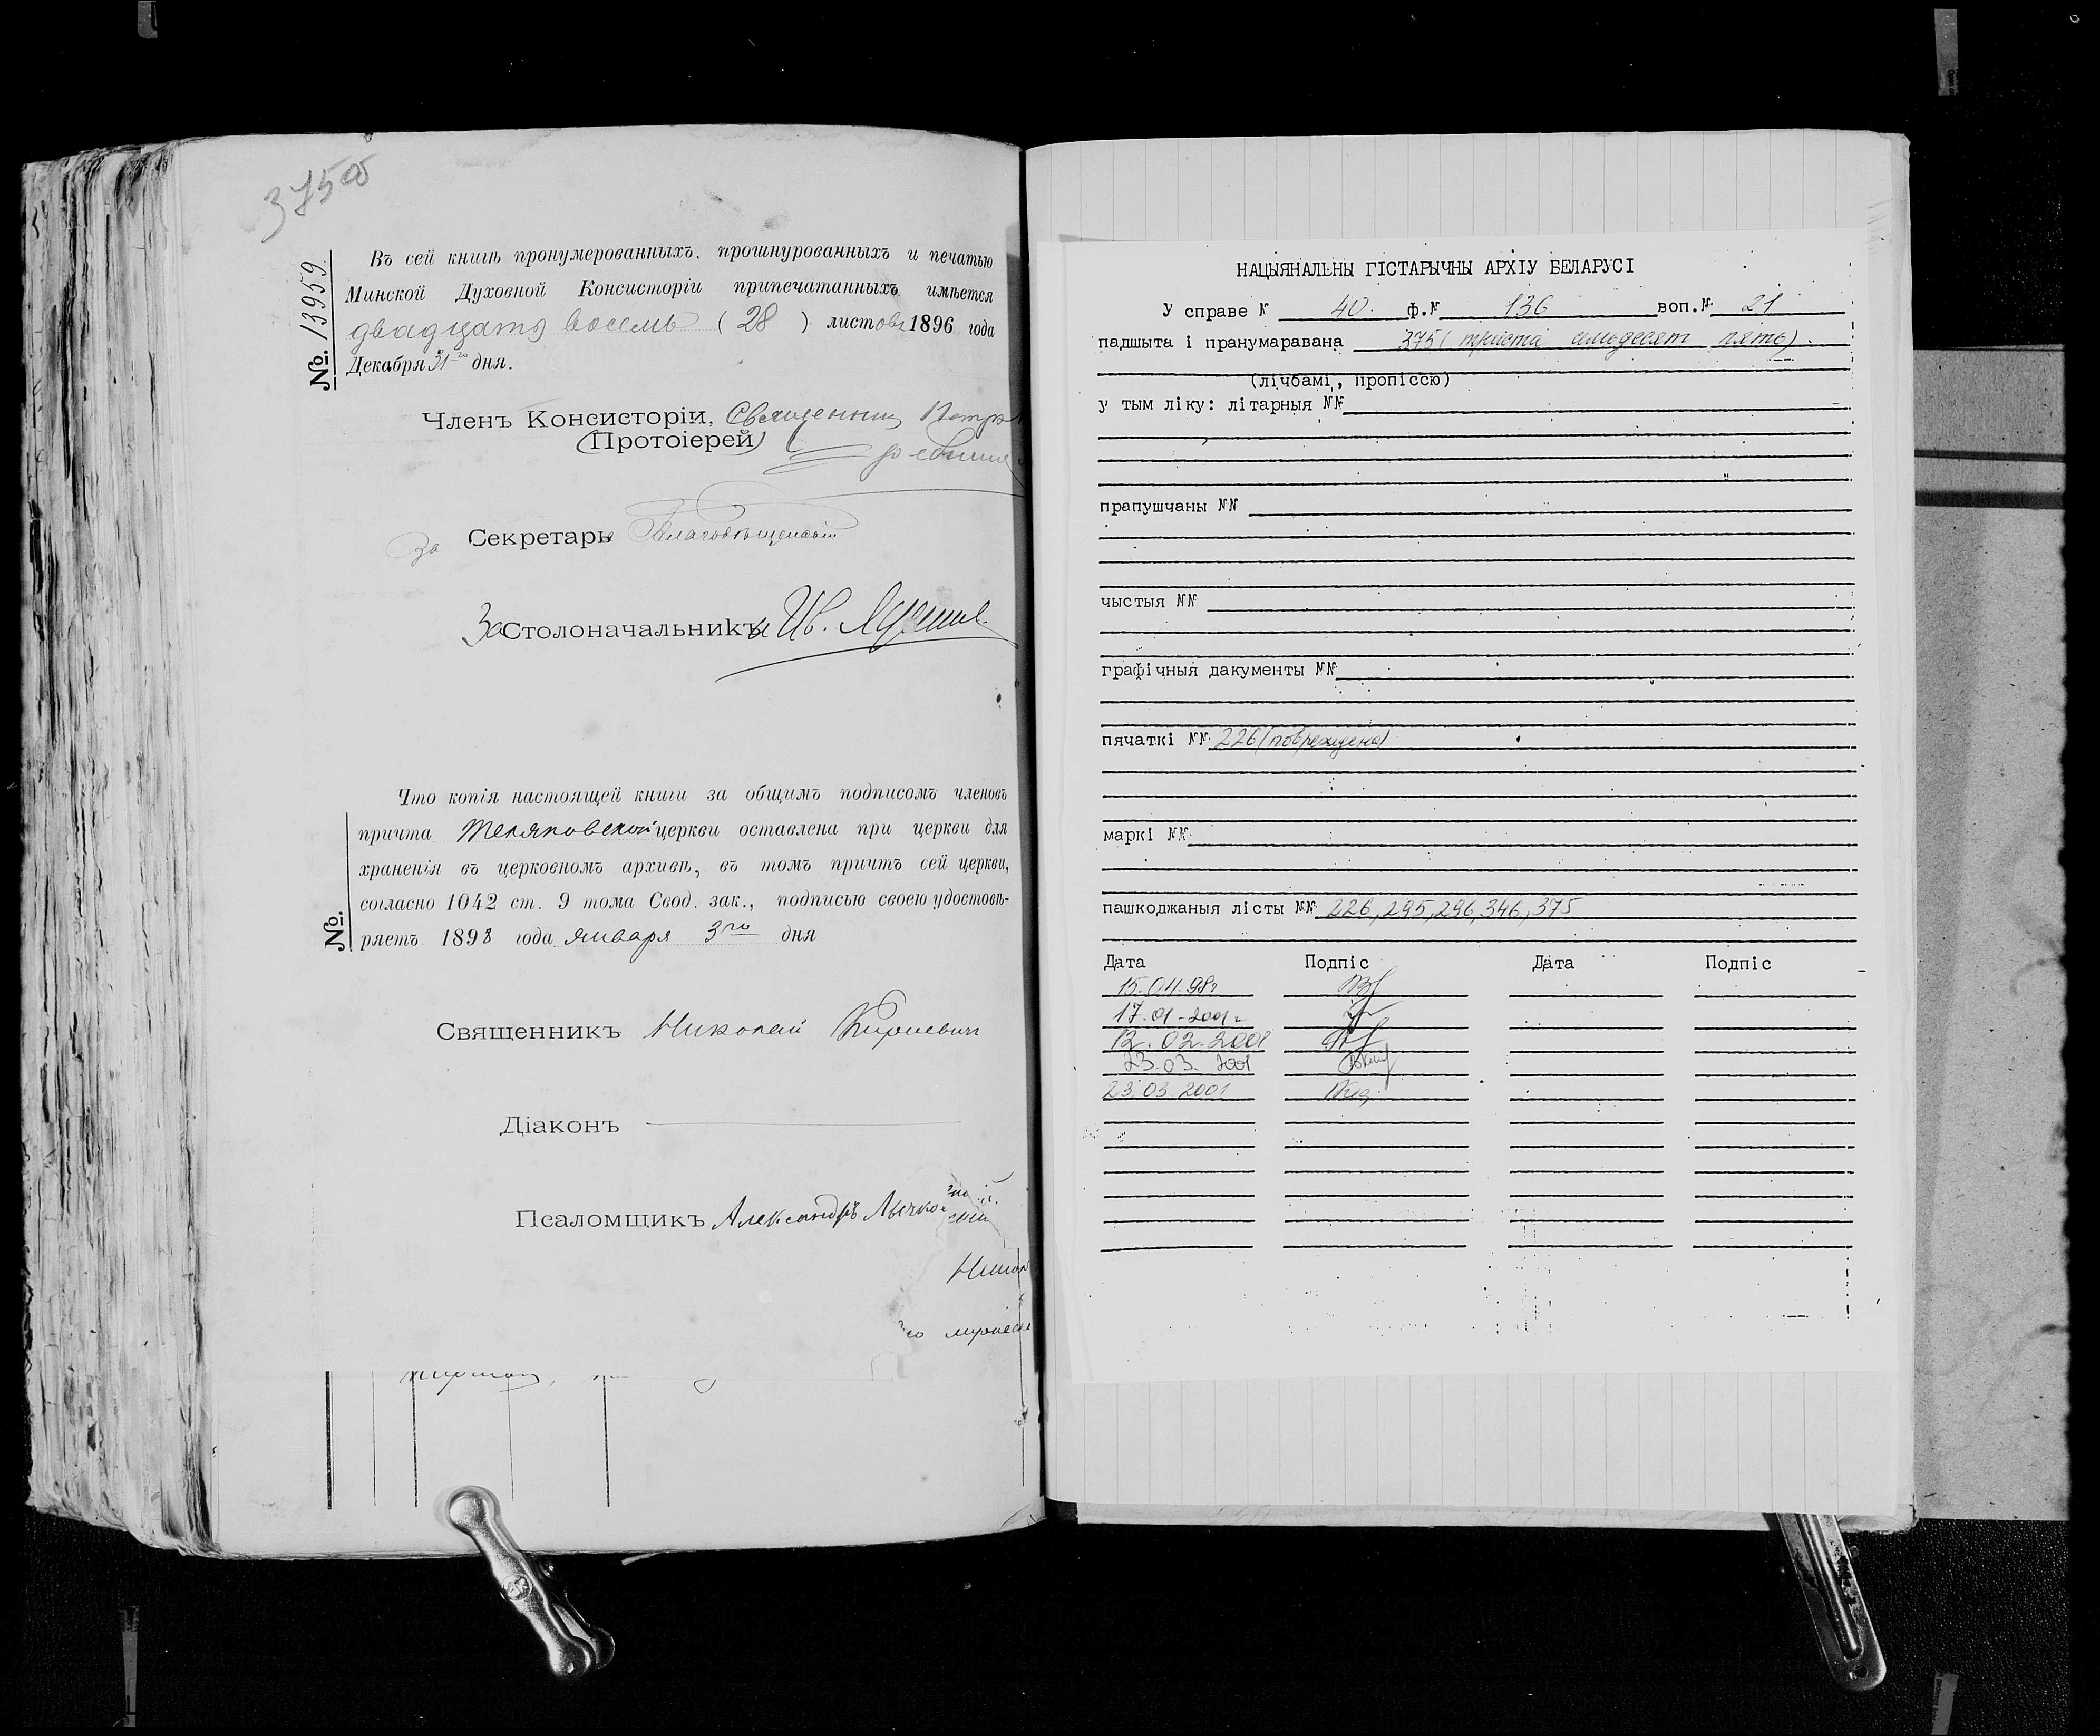 375об
№. 13959
Въ сей книгѣ пронумерованныхъ, прошнурованныхъ и печатью
Минской Духовной Консисторіи припечатанныхъ имѣется
двадцать восемь ( 28 ) листовъ 1896 года
Декабря 31го дня.
Членъ Консисторіи, Священникъ Петръ
(Протоіерей)
За Секретаря Благовѣщенскій
За Столоначальника Ив.
№.
Что копія настоящей книги за общимъ подписомъ членовъ
причта Теляковской церкви оставлена при церкви для
храненія въ церковномъ архивѣ, въ томъ причтъ сей церкви,
согласно 1042 ст. 9 тома Свод. зак., подписью своею удостовѣ-
ряетъ 1898 года января 3го дня
Священникъ Николай Киркевичъ
Діаконъ
Псаломщикъ Александръ
НАЦЫЯНАЛЬНЫ ГІСТАРЫЧНЫ АРХІУ БЕЛАРУСІ
У справе № 40. ф.№ 136 воп.№ 21
падшыта і пранумаравана 375 (триста семьдесят пять).
(лічбамі, пропіссю)
у тым ліку: літарныя №№
прапушчаны №№
чыстыя №№
графічныя дакументы №№
пячаткі №№ 226 (повреждена)
маркі №№
пашкоджаныя лісты №№ 226, 295, 296, 346, 375
Дата Подпіс Дата Подпіс
15.04.98г
17.01-2001г
12.02.2001
23.03.2001
23.03.2001